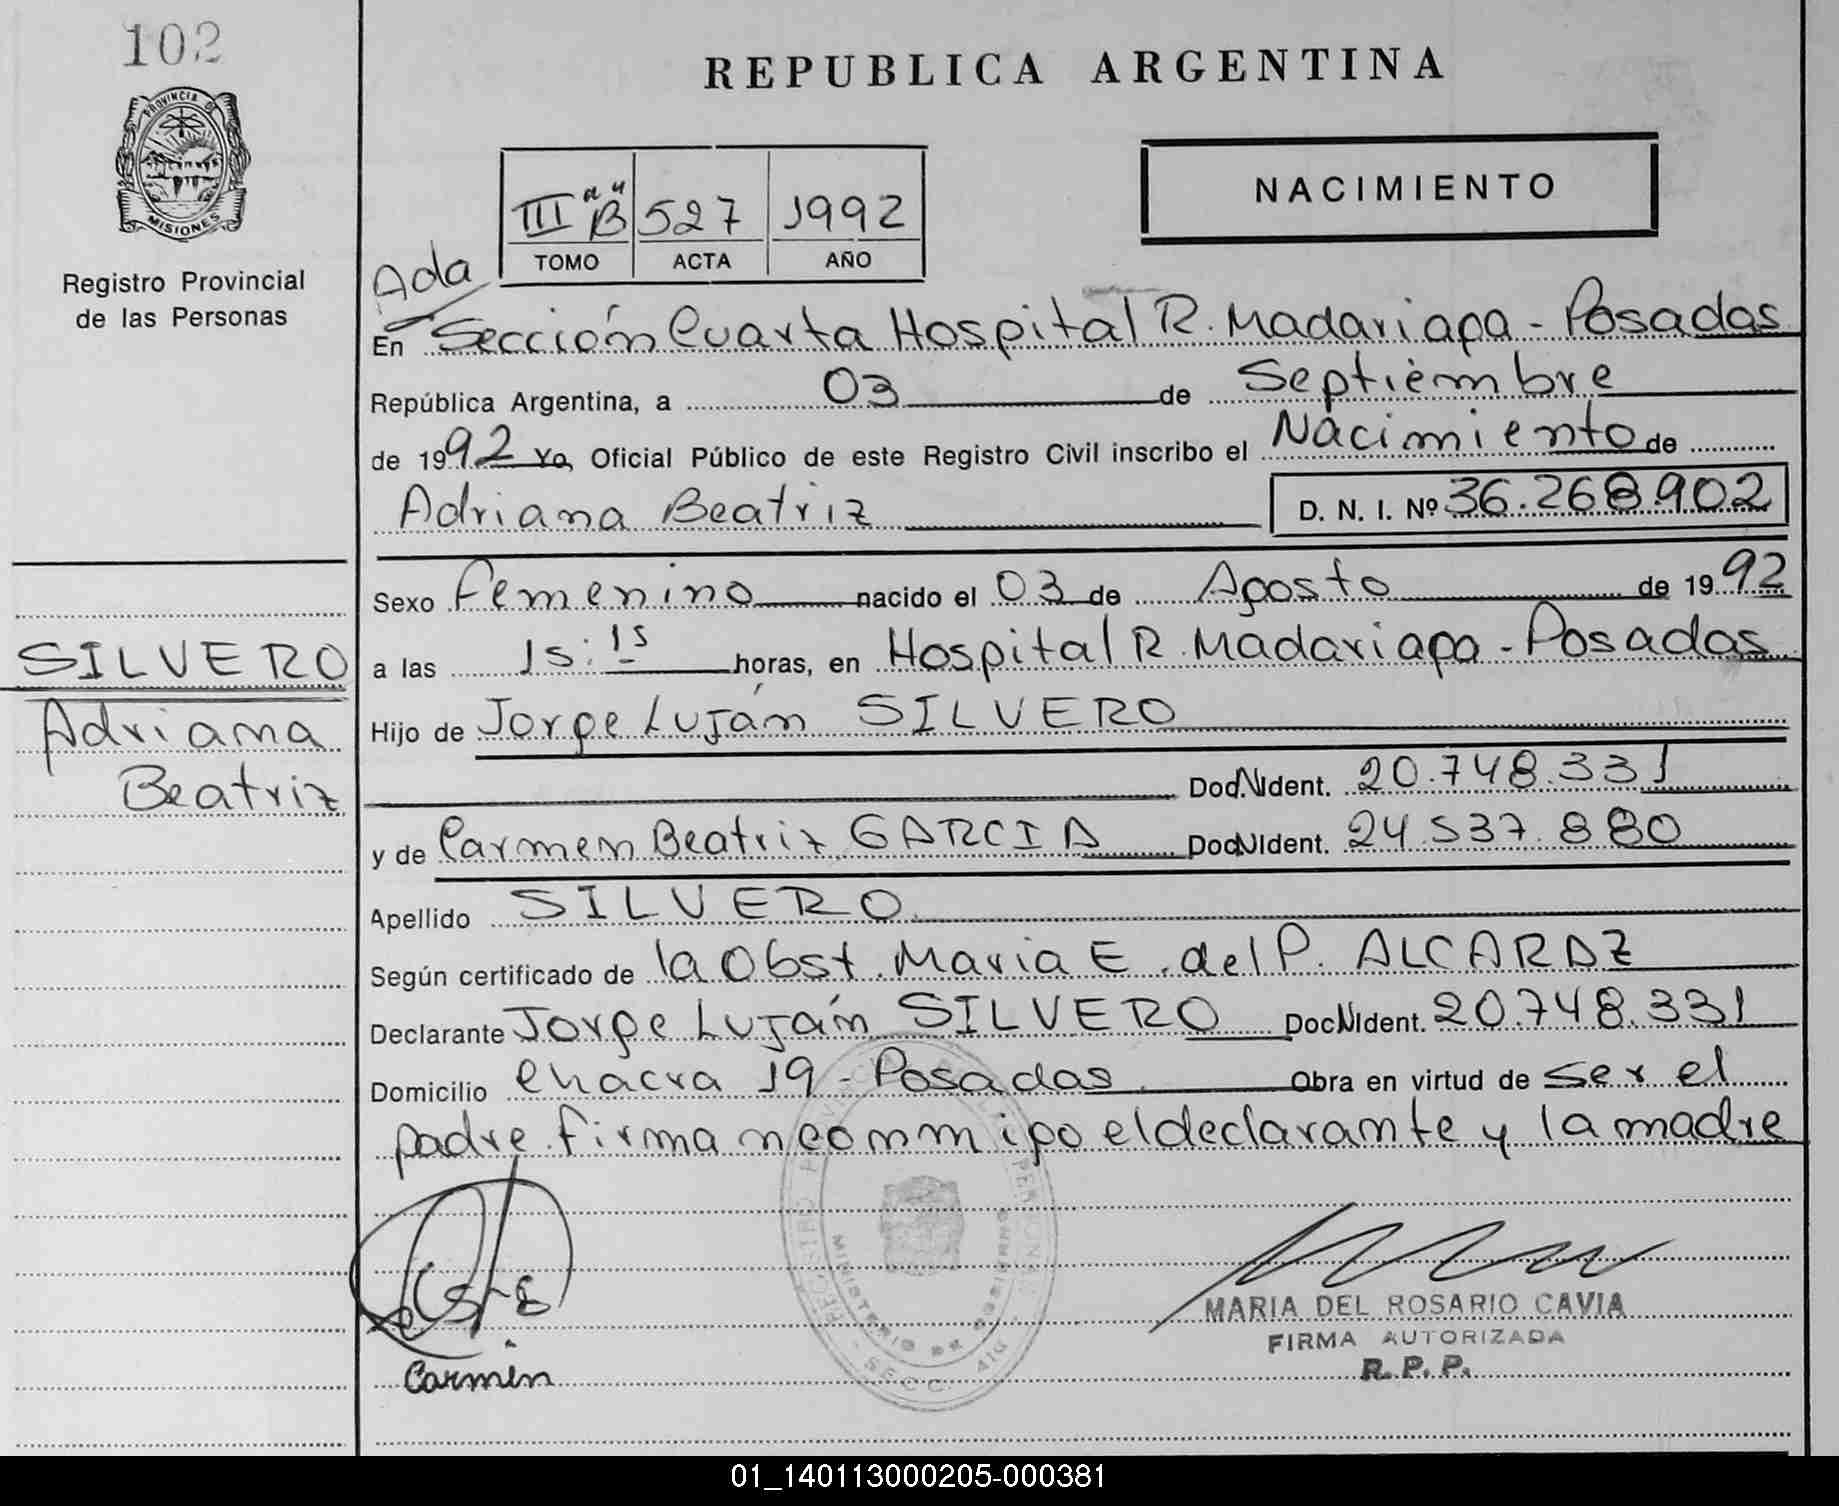 102
PROVINCIA DE
MISIONES
Registro Provincial
de las Personas
SILVERO
Adriana
Beatriz
REPUBLICA ARGENTINA
III "B" 527 1992
TOMO ACTA AÑO
NACIMIENTO
Ada
En Sección Cuarta Hospital R. Madariaga - Posadas
República Argentina, a 03 de Septiembre
de 1992 Yo, Oficial Público de este Registro Civil inscribo el Nacimiento de
Adriana Beatriz D. N. I. Nº 36.268.902
Sexo Femenino nacido el 03 de Agosto de 1992
a las 15:15 horas, en Hospital R. Madariaga - Posadas
Hijo de Jorge Luján SILVERO
Doc.N.Ident. 20.748.331
y de Carmen Beatriz GARCIA Doc.N.Ident. 24.537.880
Apellido SILVERO
Según certificado de la Obst. Maria E. del P. ALCARAZ
Declarante Jorge Luján SILVERO Doc.N.Ident. 20.748.331
Domicilio Chacra 19 - Posadas Obra en virtud de ser el
padre. firman conmigo el declarante y la madre
Carmen
REGISTRO PERSONAS
MINISTERIO DE GOBIERNO
SECC. 4ta
MARIA DEL ROSARIO CAVIA
FIRMA AUTORIZADA
R. P. P.
01_140113000205-000381